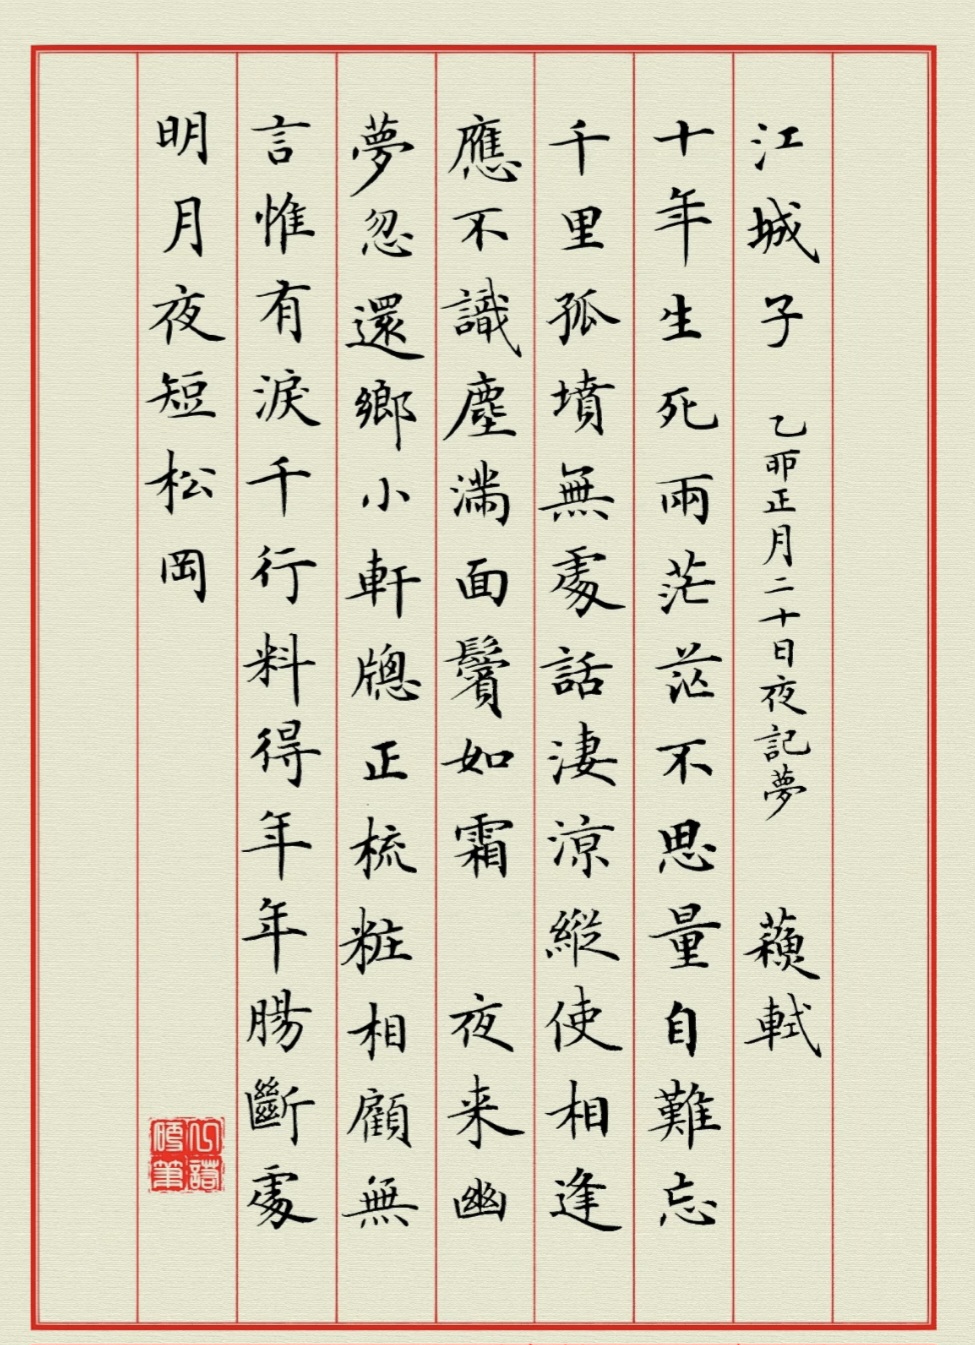 江城子 乙卯正月二十日夜記夢 蘓軾
十年生死兩茫茫不思量自難忘
千里孤墳無處話淒涼縱使相逢
應不識塵滿面鬢如霜 夜来幽
夢忽還鄉小軒牕正梳粧相顧無
言惟有淚千行料得年年腸斷處
明月夜短松岡